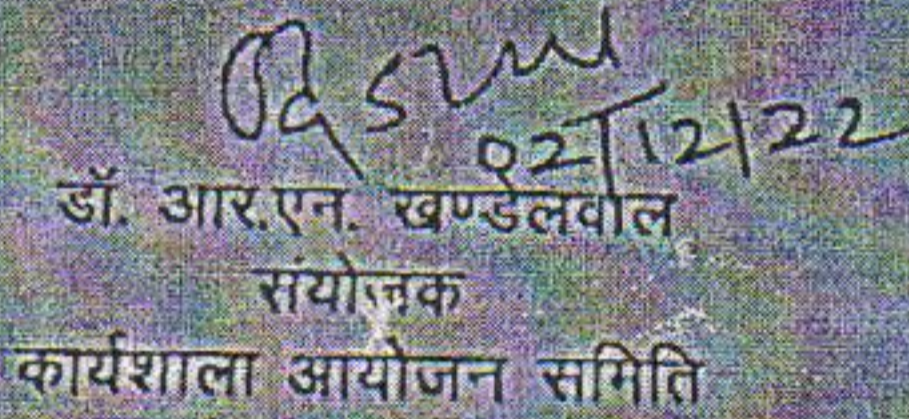 02/12/22
डॉ. आर.एन. खण्डेलवाल
संयोजक
कार्यशाला आयोजन समिति